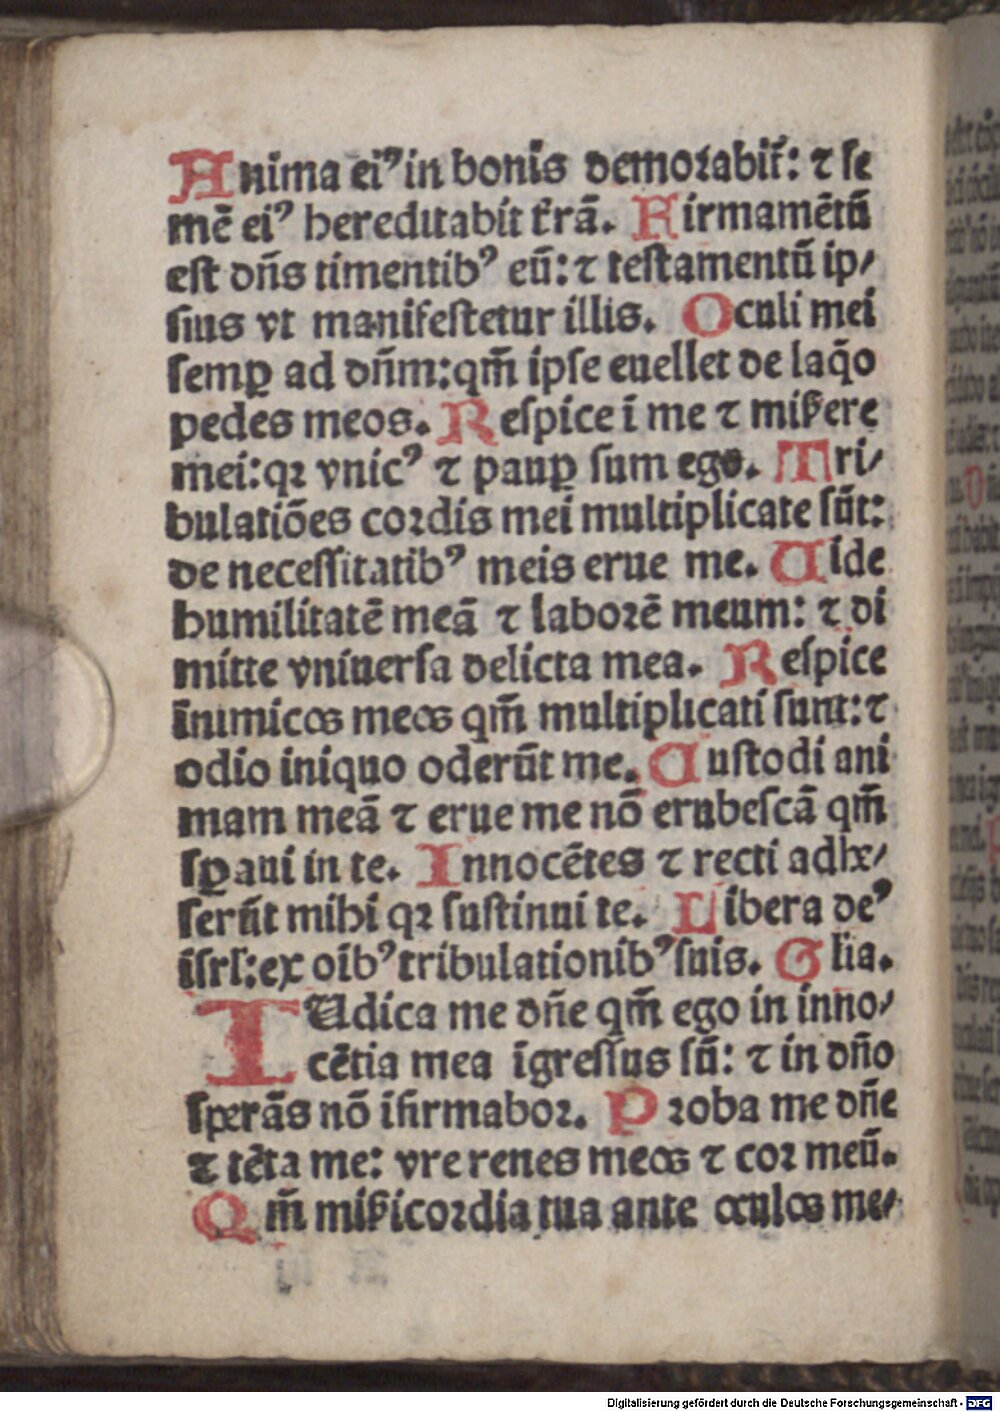 Anima eiꝰ in bonis demoꝛabit᷑: ⁊ ſe
mē eiꝰ hereditabit t̄rā. Firmamētū
eſt dn̄s timentibꝰ eū: ⁊ teſtamentū ip/
ſius vt manifeſtetur illis. Oculi mei
ſemꝑ ad dn̄m: qm̄ ipſe euellet de laq̄o
pedes meos. Reſpice ī me ⁊ miẜere
mei: qꝛ vnicꝰ ⁊ pauꝑ ſum ego. Tri/
bulatiōes coꝛdis mei multiplicate ſūt:
de neceſſitatibꝰ meis erue me. Uide
humilitatē meā ⁊ laboꝛē meum: ⁊ di
mitte vniuerſa delicta mea. Reſpice
inimicos meos qm̄ multiplicati ſunt: ⁊
odio iniquo oderūt me. Cuſtodi ani
mam meā ⁊ erue me nō erubeſcā qm̄
ſꝑaui in te. Innocētes ⁊ recti adhe/
ſerūt mihi qꝛ ſuſtinui te. Libera deꝰ
iſrl: ex oib̄ꝰ tribulationibꝰ ſuis. Glia.
IUdica me dn̄e qm̄ ego in inno/
cētia mea īgreſſus ſū: ⁊ in dn̄o
ſperās nō īfirmaboꝛ. Proba me dn̄e
⁊ tēta me: vre renes meos ⁊ coꝛ meū.
Qm̄ miẜicoꝛdia tua ante oculos me/
Digitalisierung gefördert durch die Deutsche Forschungsgemeinschaft - DFG